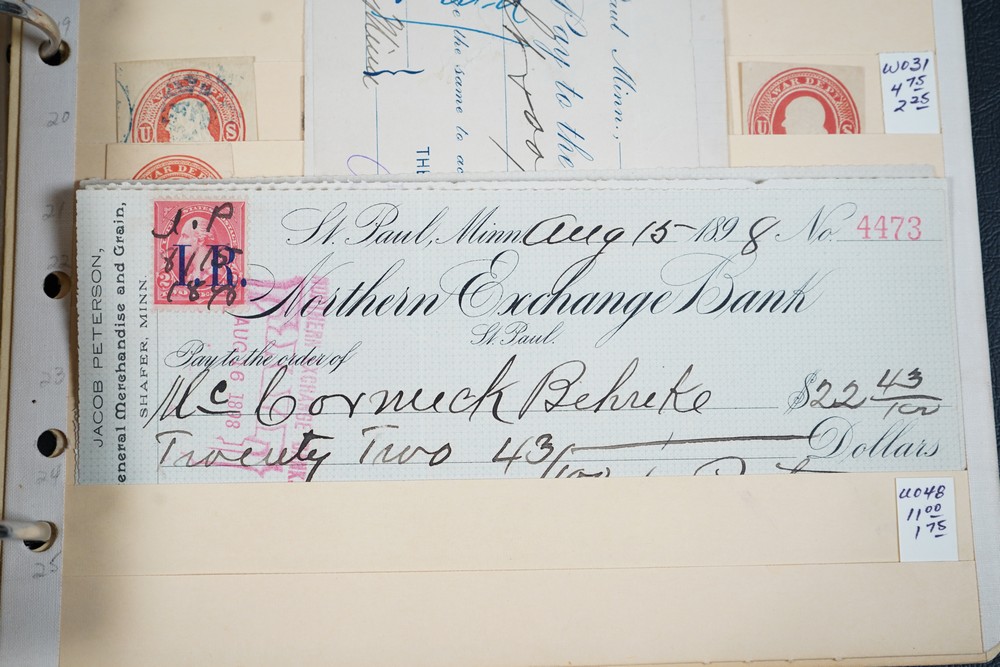 19
20
21
22
23
24
25
Paul Minn.,
Pay to the
e the same to
Minn
THE
WAR DEPT
U S
WAR DEPT
U S
WAR DE
UO31
4 75
2 25
JACOB PETERSON,
eneral Merchandise and Grain,
SHAFER, MINN.
J. P
I.R.
8/15
1898
St. Paul, Minn. Aug 15 1898 No. 4473
Northern Exchange Bank
St. Paul.
Pay to the order of
Mc Cormick Behreke $22 43/100
Twenty Two 43/100 Dollars
NORTHERN EXCHANGE BANK
AUG 16 1898
UO48
11 00
1 75